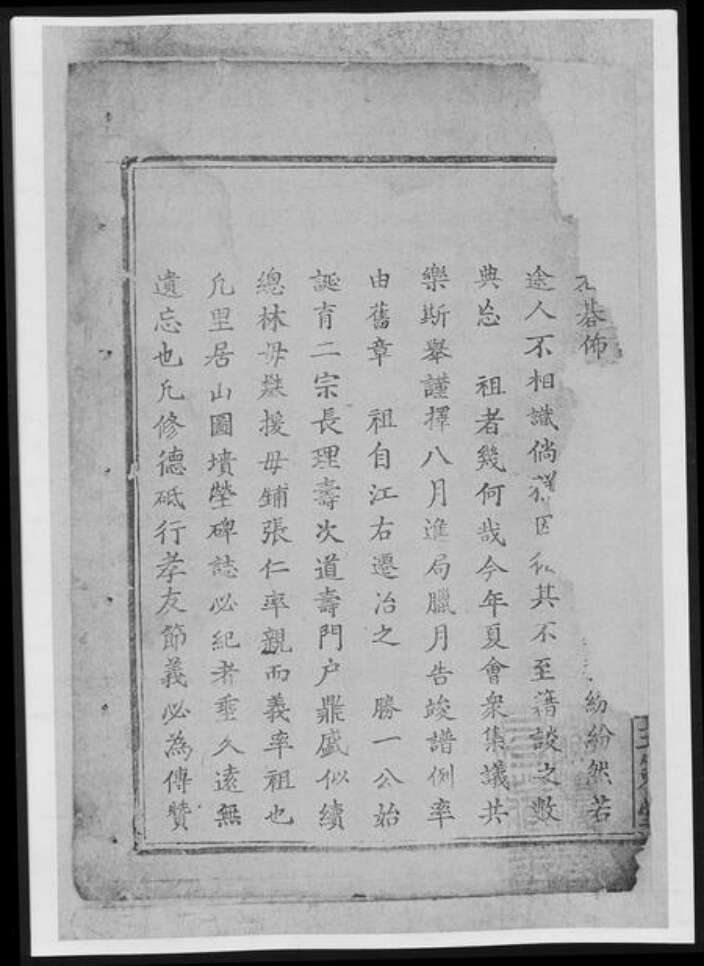 棊佈紛紛然若
途人不相識倘其不至籍談之數
典忘 祖者幾何哉今年夏會衆集議共
樂斯舉謹擇八月進局臘月告竣譜例率
由舊章 祖自江右遷冶之 勝一公始
誕育二宗長理壽次道壽門户鼎盛似續
總林毋攀援毋鋪張仁率親而義率祖也
凢里居山圖墳塋碑誌必紀者垂久遠無
遺忘也凢修德砥行孝友節義必為傳贊